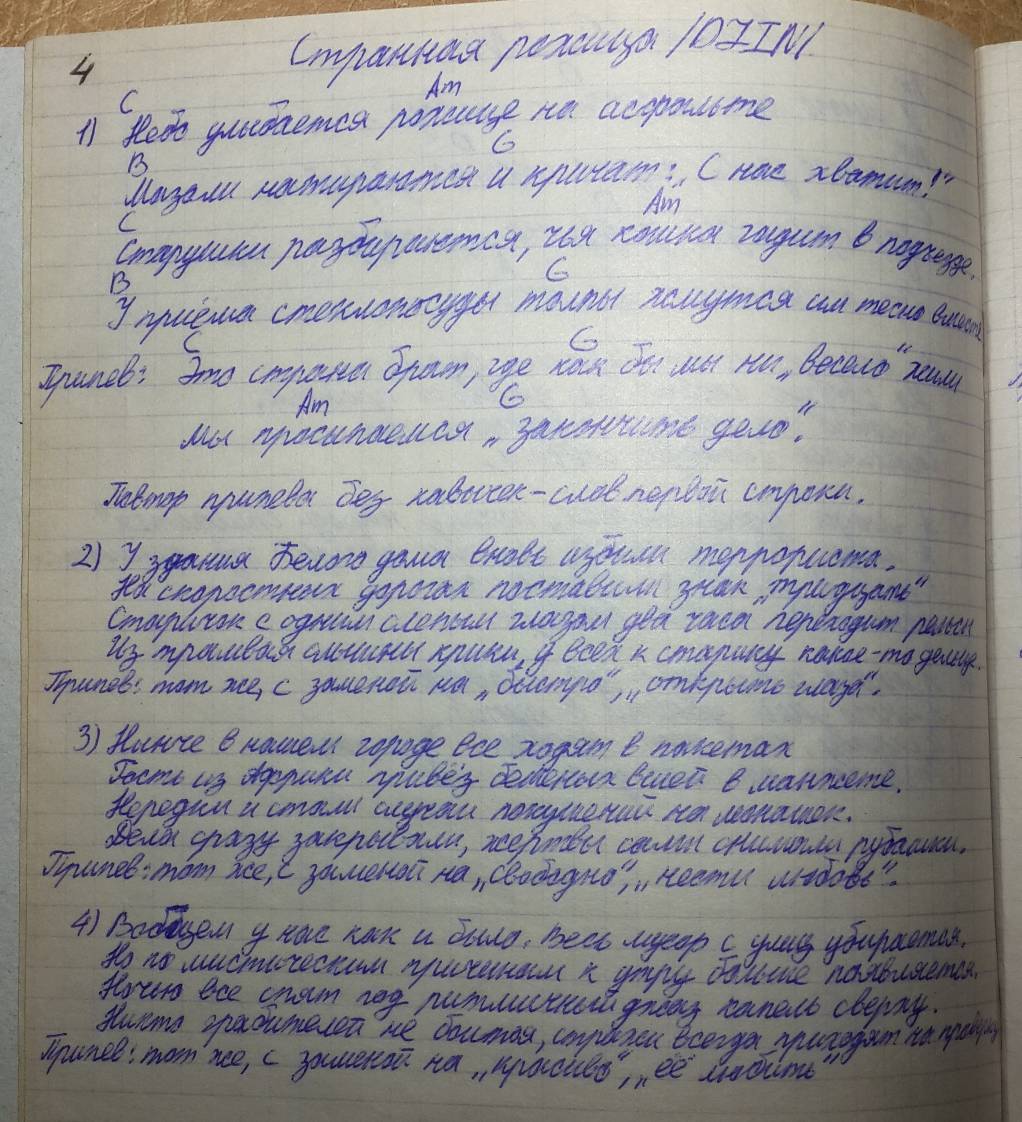 4
Странная рожица /DJIN/
C Am
1) Небо улыбается рожице на асфальте
B G
Мозоли натираются и кричат: „С нас хватит!“
C Am
Старушки разбираются, чья кошка гадит в подъезде.
B G
У приёма стеклопосуды толпы жмутся им тесно вместе
C G
Припев: Это страна брат, где как бы мы ни „весело“ жили
Am G
мы просыпаемся „закончить дело“.
Повтор припева без кавычек-слов первой строки.
2) У здания Белого дома вновь избили террориста.
На скоростных дорогах поставили знак „тридцать“
Старичок с одним слепым глазом два часа переходит рельсы
Из трамвая слышны крики, у всех к старику какое-то дельце.
Припев: тот же, с заменой на „быстро“, „открыть глаза“.
3) Нынче в нашем городе все ходят в пакетах
Гость из Африки привёз бешеных вшей в манжете.
Нередки и стали случаи покушений на монашек.
Дела сразу закрывали, жертвы сами снимали рубашки.
Припев: тот же, с заменой на „свободно“, „нести любовь“.
4) Вообщем у нас как и было. Весь мусор с улиц убирается.
Но по мистическим причинам к утру больше появляется.
Ночью все спят под ритмичный джаз капель сверху.
Никто грабителей не боится, стражи всегда приходят на проверку
Припев: тот же, с заменой на „красиво“, „её любить“